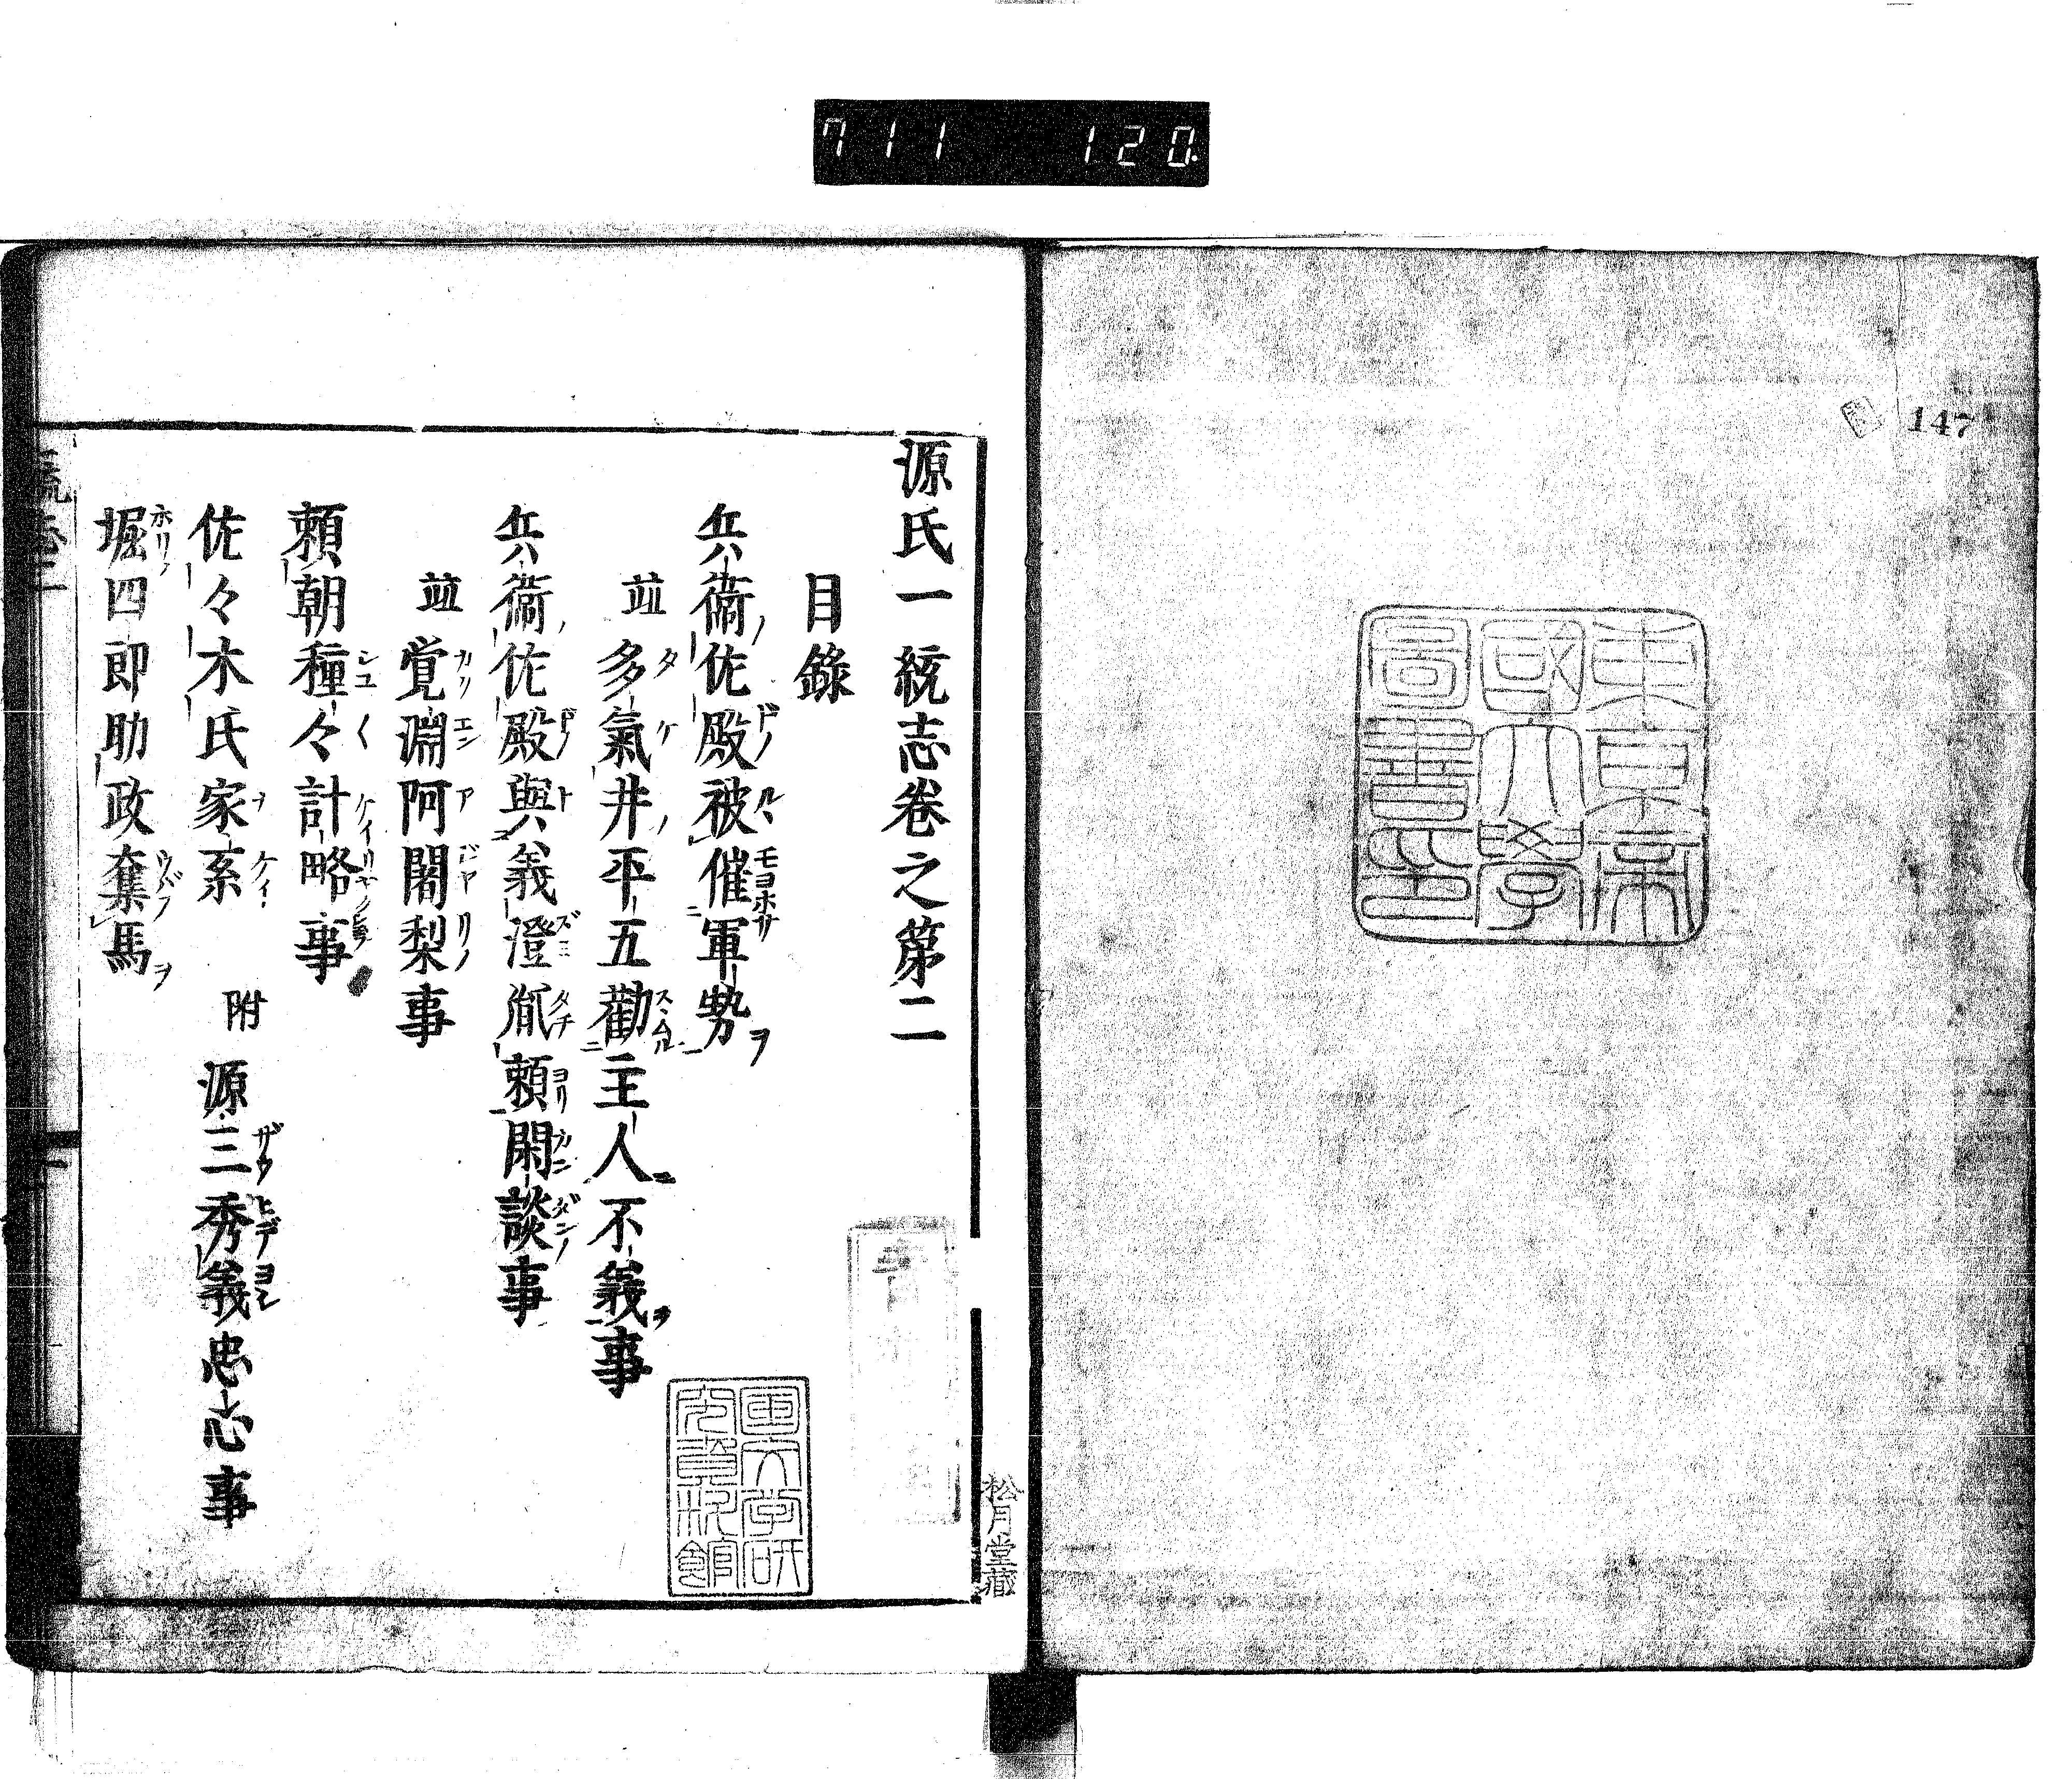 711 120
147
東京帝
國大學
圖書印
源氏一統志巻之第二
目錄
兵衞佐殿被催軍勢
並多氣井平五勸主人不義事
兵衞佐殿與義澄胤頼閑談事
並覚淵阿闍梨事
頼朝種々計略事
佐々木氏家系 附 源三秀義忠志事
堀四郎助政奪馬
国文学研
究資料館
松月堂藏